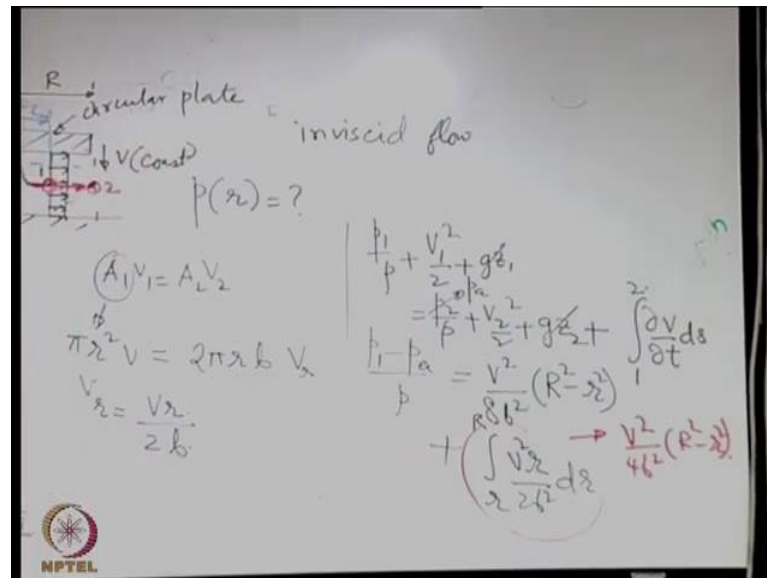 R
circular plate
inviscid flow
V(const)
1 2
p(r) = ?
A₁V₁ = A₂V₂
πr²V = 2πrb Vᵣ
Vᵣ = Vr / 2b
p₁/ρ + V₁²/2 + gz₁
= p₂/ρ + V₂²/2 + gz₂ + ∫₁² ∂v/∂t ds
pₐ
(p₁ - pₐ)/ρ = V²/8b² (R² - r²)
+ ∫ᵣᴿ V²r/2b² dr → V²/4b² (R² - r²)
n
NPTEL